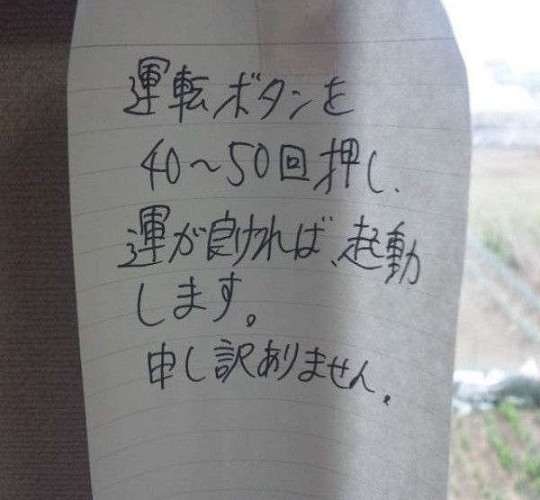 運転ボタンを
40～50回押し、
運が良ければ、起動
します。
申し訳ありません。